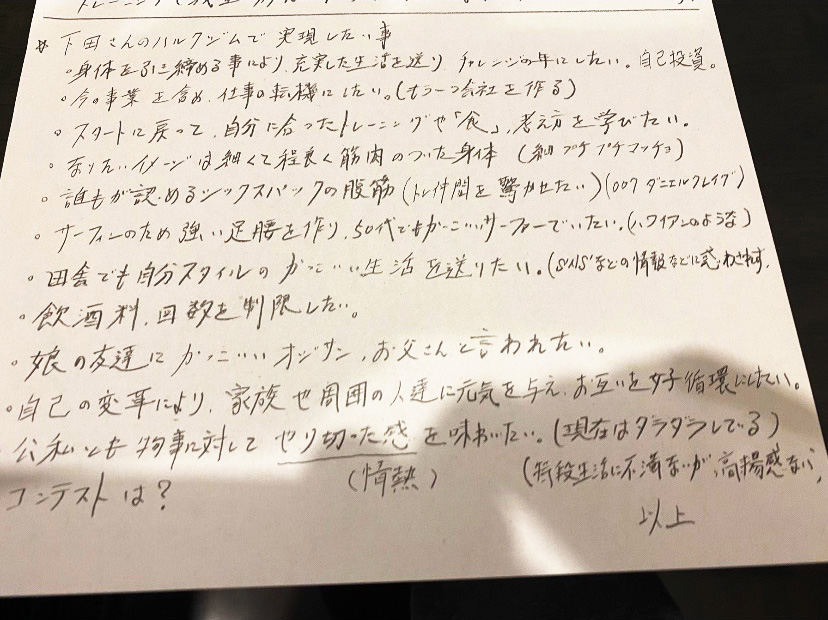 ☆ 下田さんのハルクジムで 実現したい事
・身体を引き締める事により、充実した生活を送り チャレンジの年にしたい。自己投資。
・今の事業を含め、仕事の転機にしたい。(もう一つ会社を作る)
・スタートに戻って、自分に合ったトレーニングや「食」、考え方を学びたい。
・なりたいイメージは細くて程良く筋肉のついた身体 (細プチプチマッチョ)
・誰もが認めるシックスパックの腹筋 (トレ仲間を驚かせたい) (007 ダニエルクレイグ)
・サーフィンのため強い足腰を作り、50代でもかっこいいサーファーでいたい。(ハワイアンのような)
・田舎でも自分スタイルのかっこいい生活を送りたい。(SNSなどの情報などに惑わされず、
・飲酒料、回数を制限したい。
・娘の友達にかっこいいオジサン、お父さんと言われたい。
・自己の変革により、家族や周囲の人達に元気を与え、お互いを好循環にしたい。
公私とも物事に対してやり切った感を味わいたい。(現在はダラダラしてる)
(情熱) (特段生活に不満ないが、高揚感ない、
コンテストは?
以上